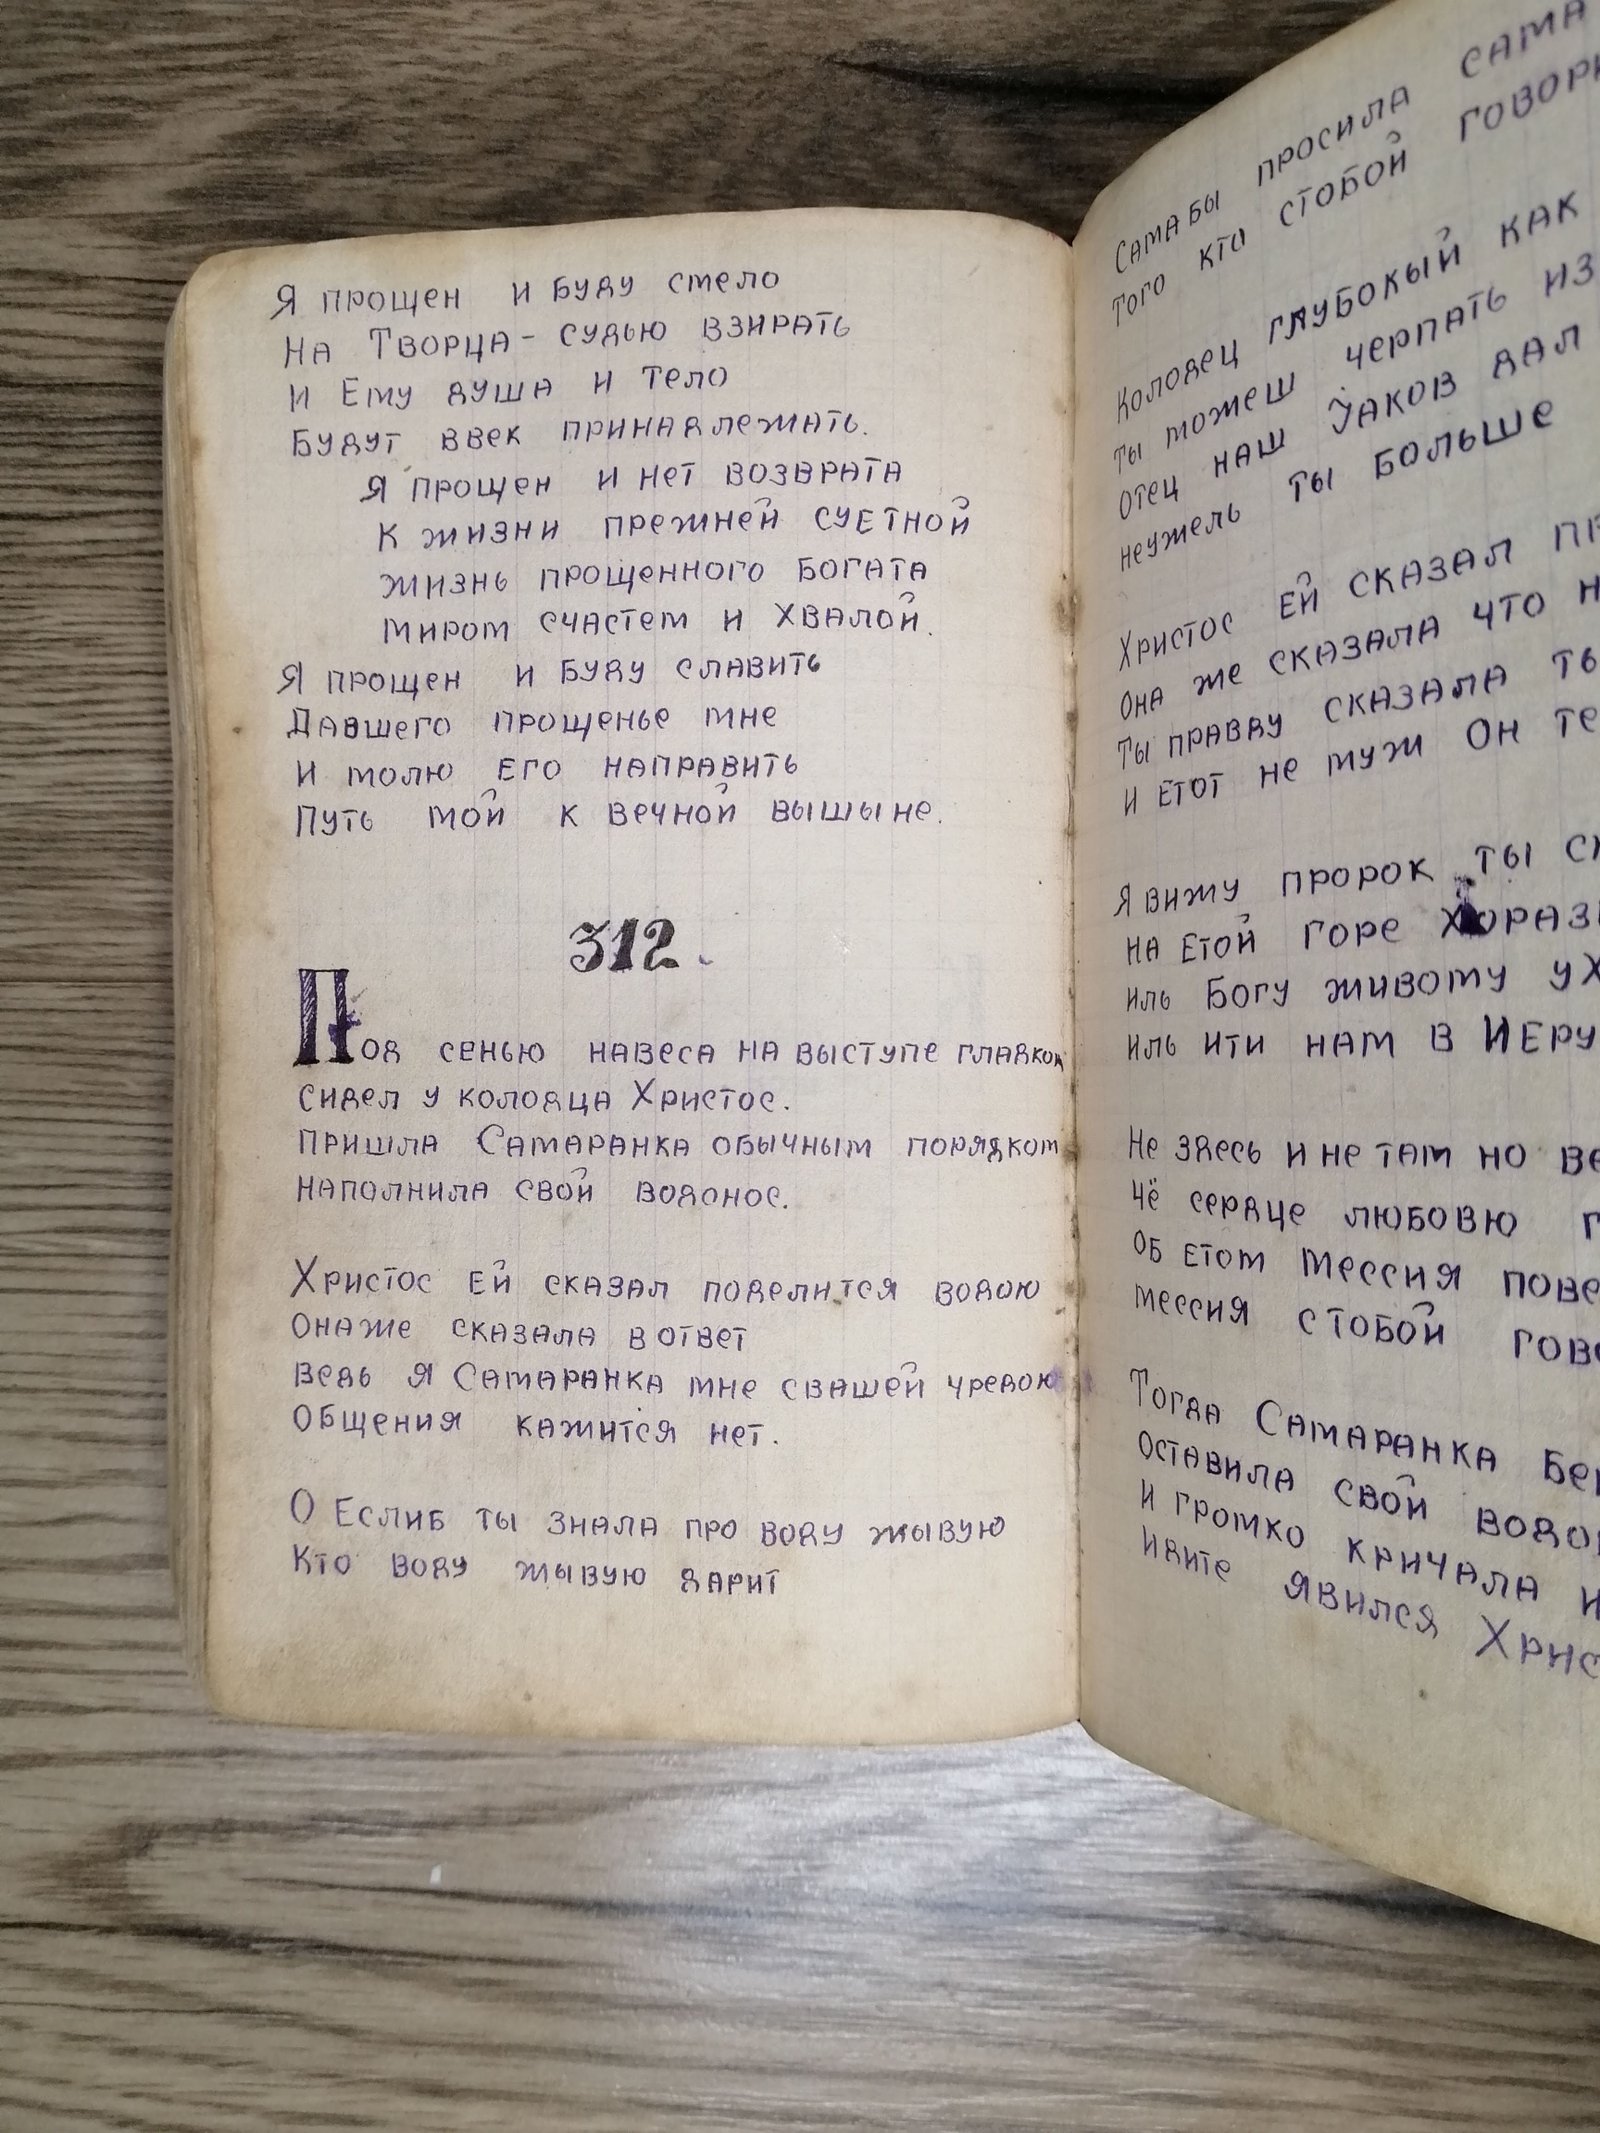 Я прощен и буду смело
На Творца - судью взирать
И Ему душа и тело
Будут ввек принадлежать.
Я прощен и нет возврата
К жизни прежней суетной
жизнь прощенного богата
миром счастем и хвалой.
Я прощен и буду славить
Давшего прощенье мне
И молю Его направить
Путь мой к вечной вышыне.
312.
Под сенью навеса на выступе гладком
сидел у колодца Христос.
пришла Самаранка обычным порядком
наполнила свой водонос.
Христос ей сказал поделится водою
Онаже сказала в ответ
ведь я Самаранка мне свашей чредою
Общения кажится нет.
О Еслиб ты знала про воду жывую
Кто воду жывую дарит
Сама бы просила сама
Того кто стобой
Колодец глубокый как
ты можеш черпать из
Отец наш Иаков дал
неужель ты больше
Христос ей сказал
Она же сказала что
Ты правду сказала
И етот не муж Он
Я вижу пророк ты
на етой горе
иль Богу живому
иль ити нам в
Не здесь и не там но
чё сердце любовю
Об етом Мессия
мессия стобой
Тогда Самаранка
Оставила свой
И громко кричала
идите явился